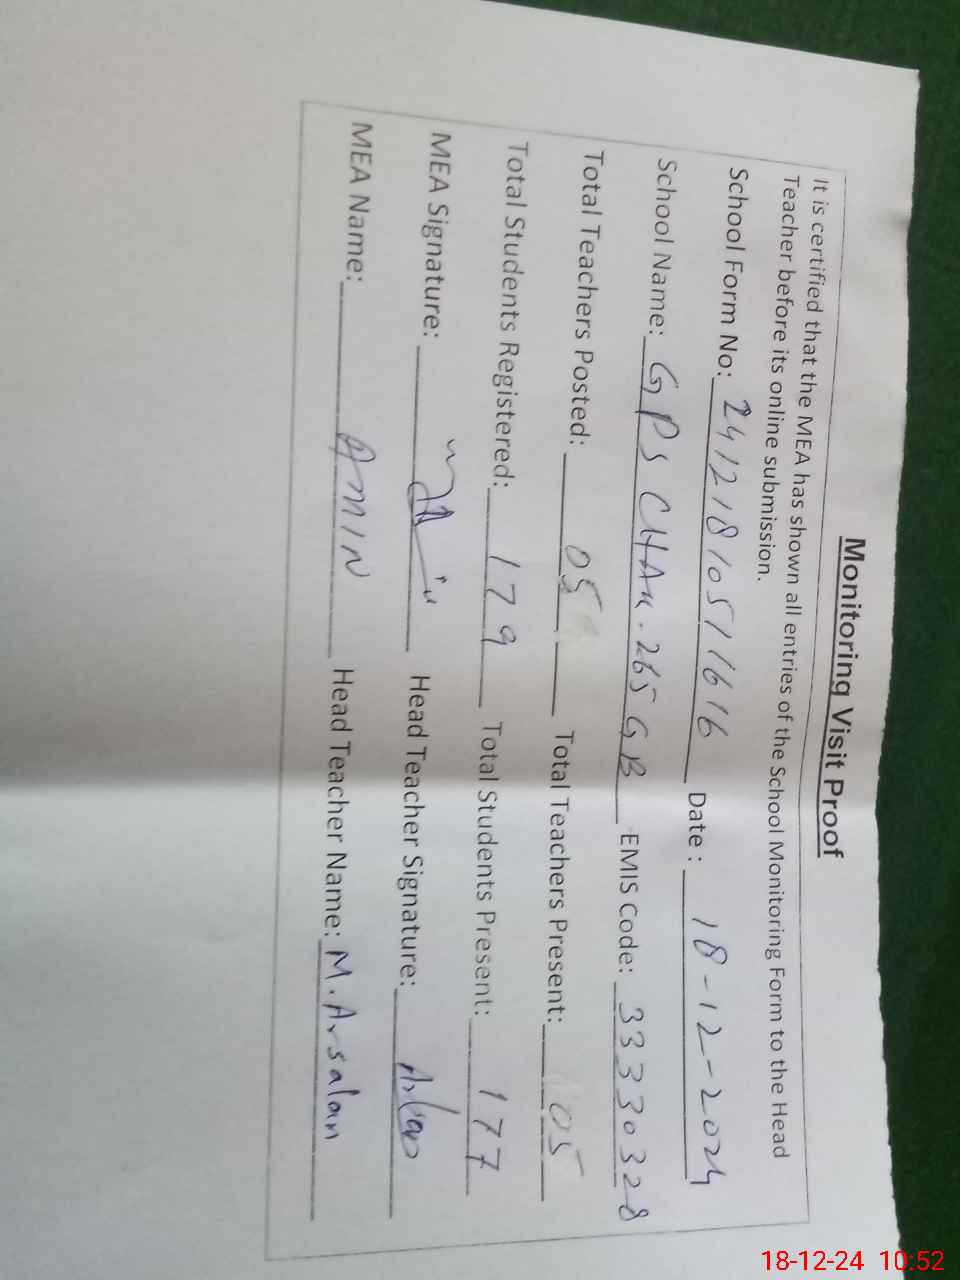 Monitoring Visit Proof
It is certified that the MEA has shown all entries of the School Monitoring Form to the Head
Teacher before its online submission.
School Form No: 24121810511616 Date : 18-12-2024
School Name: GPS CHAK. 265 GB EMIS Code: 33330328
Total Teachers Posted: 05 Total Teachers Present: 05
Total Students Registered: 179 Total Students Present: 177
MEA Signature: Head Teacher Signature: Arslan
MEA Name: AMIN Head Teacher Name: M. Arsalan
18-12-24 10:52